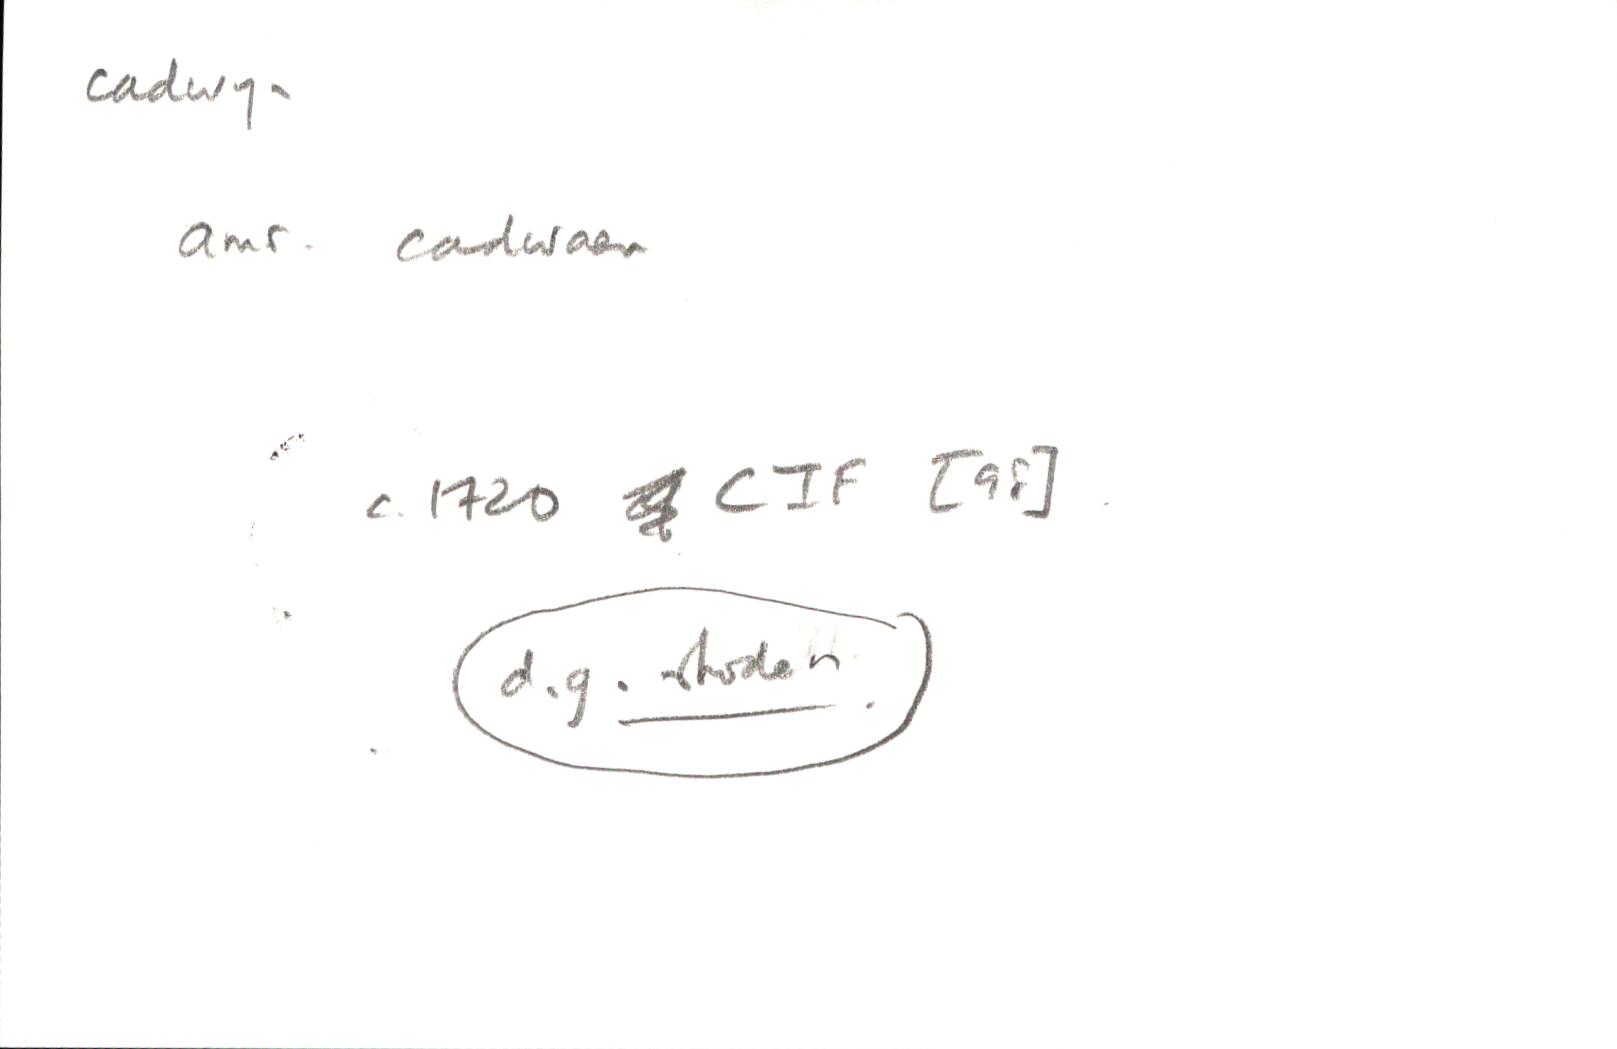 cadwyn
amr. cadwaen
c. 1720 CIF [98]
d.g. rhoden.